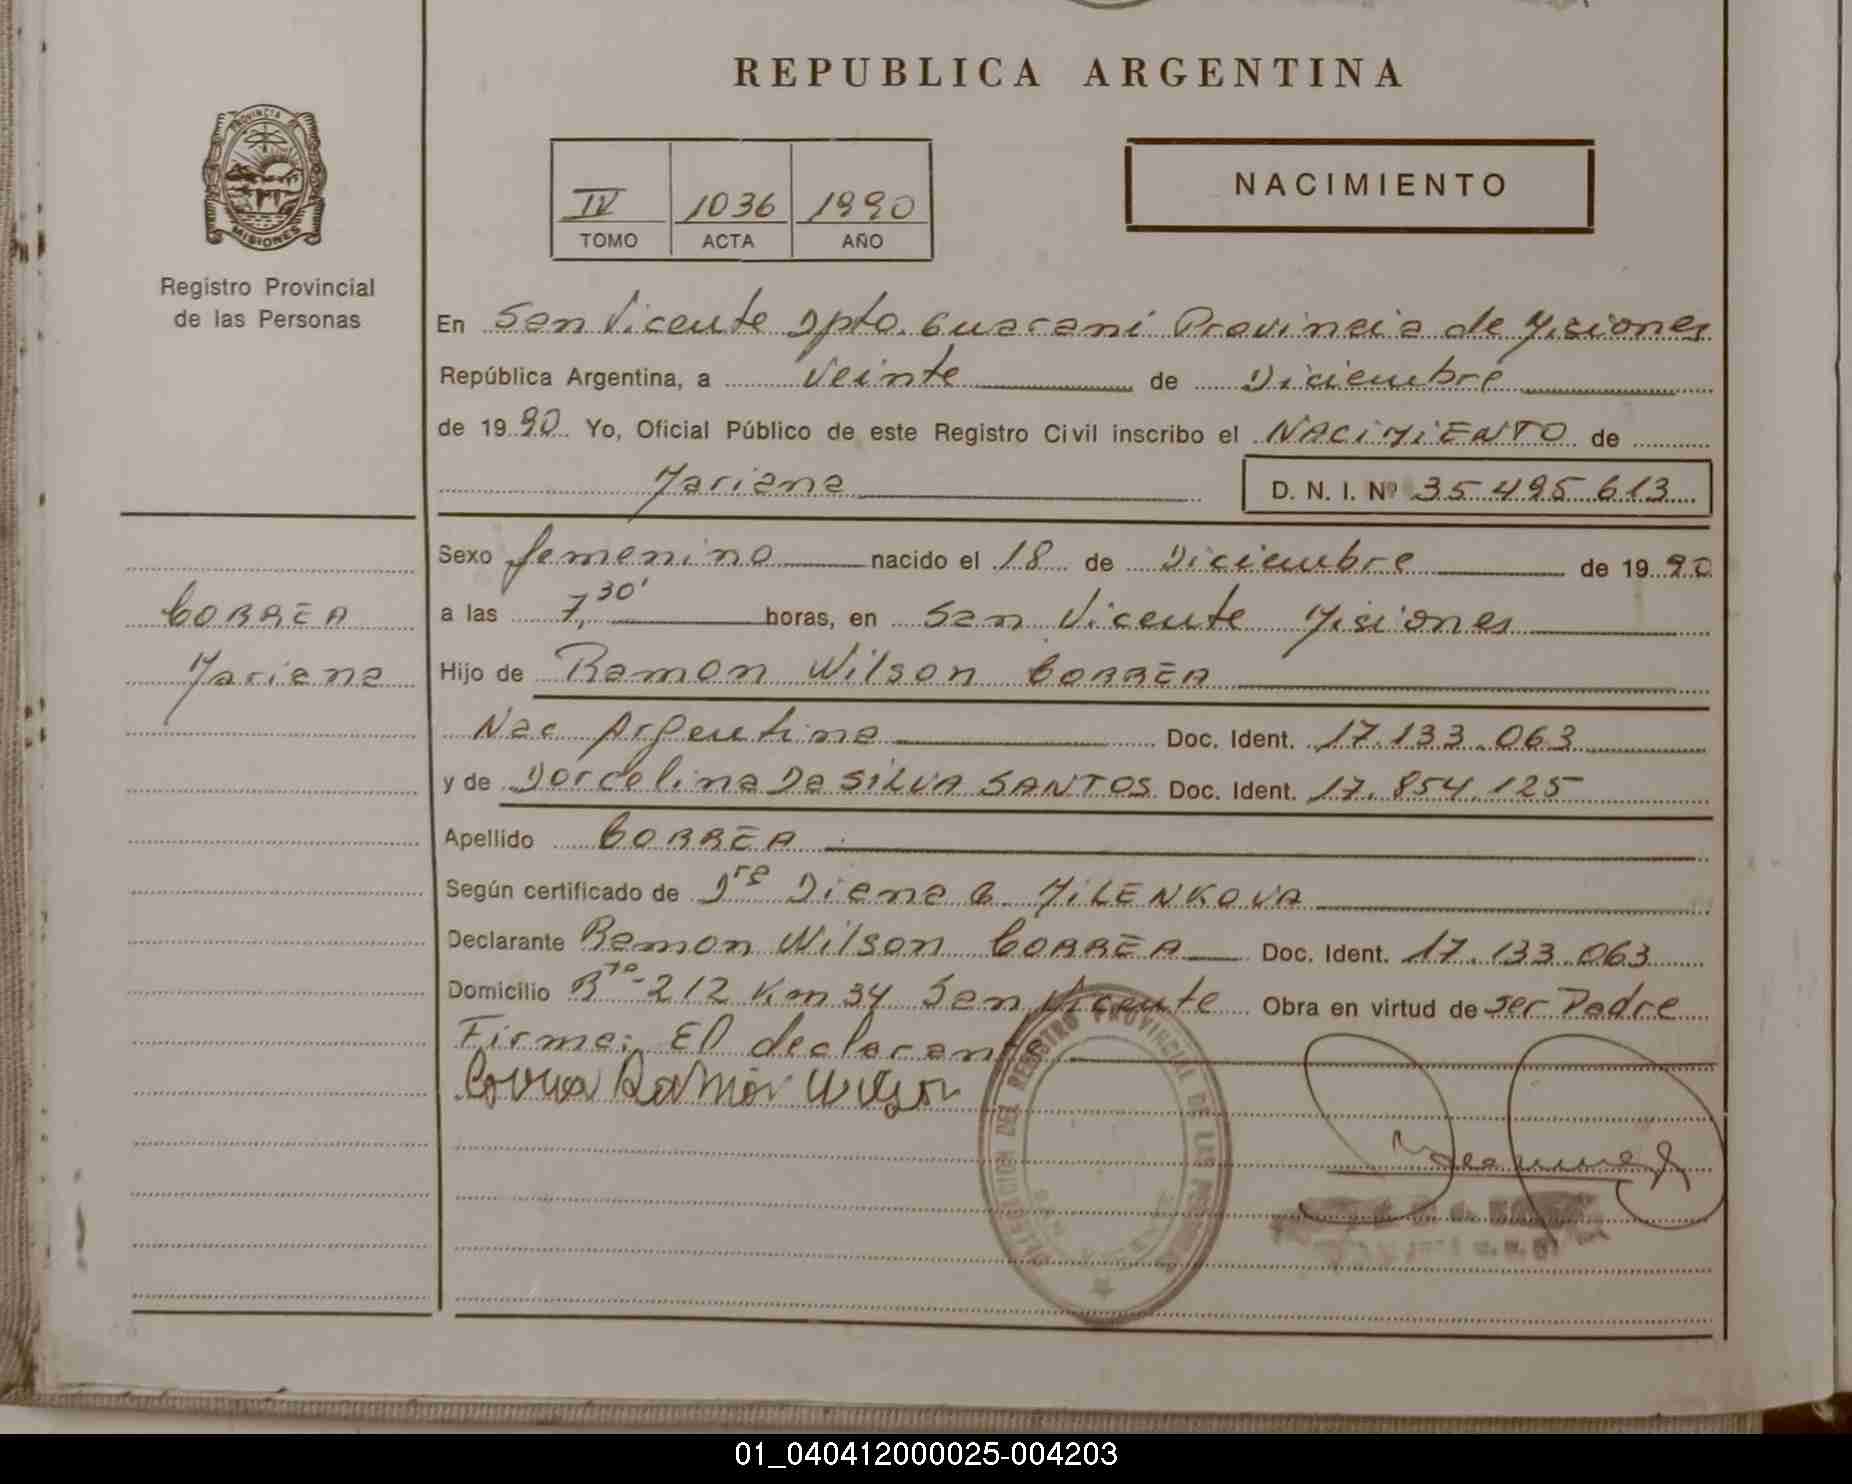 REPUBLICA ARGENTINA
PROVINCIA DE
MISIONES
Registro Provincial
de las Personas
IV 1036 1990
TOMO ACTA AÑO
NACIMIENTO
En San Vicente Dpto. Guarani Provincia de Misiones
República Argentina, a Veinte de Diciembre
de 1990 Yo, Oficial Público de este Registro Civil inscribo el NACIMIENTO de
Mariana D. N. I. Nº 35 495 613
Sexo femenino nacido el 18 de Diciembre de 1990
CORREA
Mariana
a las 7,30' horas, en San Vicente Misiones
Hijo de Ramon Wilson CORREA
Nac Argentina Doc. Ident. 17.133.063
y de Dorcelina Da SILVA SANTOS Doc. Ident. 17.854.125
Apellido CORREA
Según certificado de Dra Diana C. MILENKOVA
Declarante Ramon Wilson CORREA Doc. Ident. 17.133.063
Domicilio Rta-212 Km 34 San Vicente Obra en virtud de ser Padre
Firma: El declarante
Correa Ramón Wilson
DELEGACION DEL REGISTRO PROVINCIAL DE LAS PERSONAS
SAN VICENTE
01_040412000025-004203